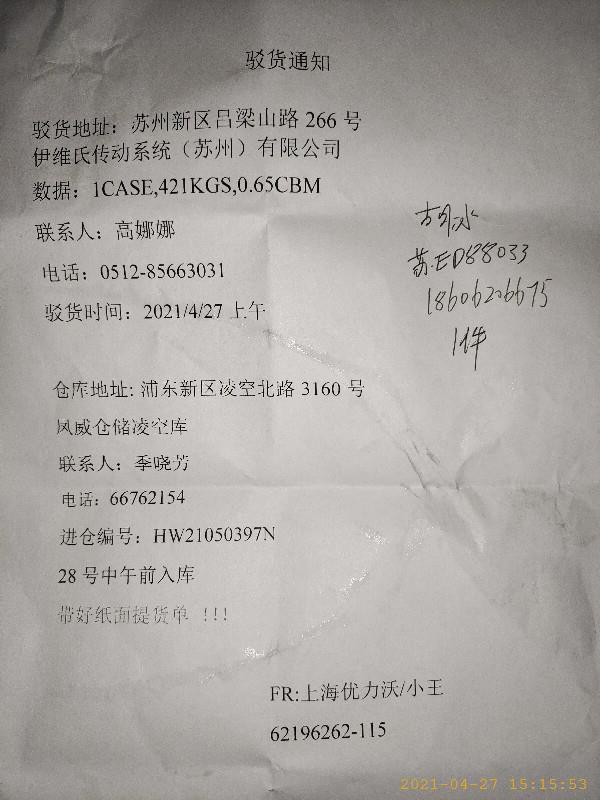 驳货通知
驳货地址：苏州新区吕梁山路 266 号
伊维氏传动系统（苏州）有限公司
数据：1CASE,421KGS,0.65CBM
联系人：高娜娜
电话：0512-85663031
驳货时间：2021/4/27 上午
胡冰
苏.ED88033
18606206675
1件
仓库地址: 浦东新区凌空北路 3160 号
凤威仓储凌空库
联系人：季晓芳
电话：66762154
进仓编号：HW21050397N
28 号中午前入库
带好纸面提货单 !!!
FR:上海优力沃/小王
62196262-115
2021-04-27 15:15:53